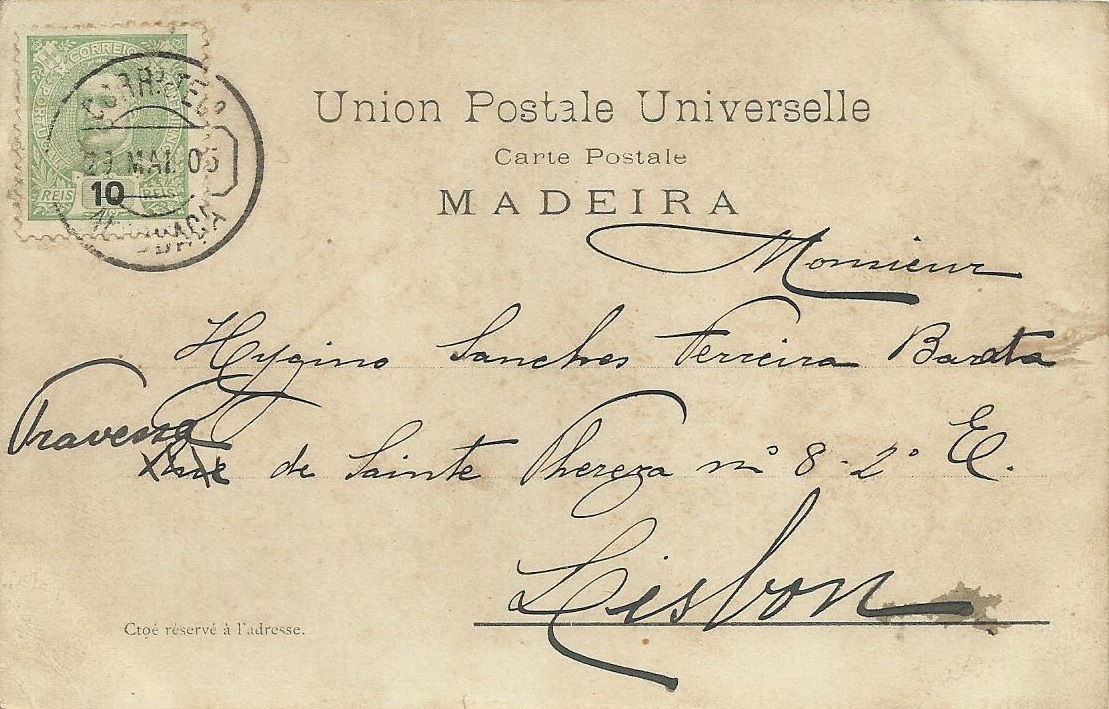 CORREIO
PORTUGAL
REIS 10 REIS
CORR. TEL.
29 MAI. 05
Union Postale Universelle
Carte Postale
MADEIRA
Monsieur
Hygino Sanches Ferreira Barata
Travessa
Rue de Sainte Thereza nº 8-2º E.
Lisbon
Ctoé réservé à l'adresse.